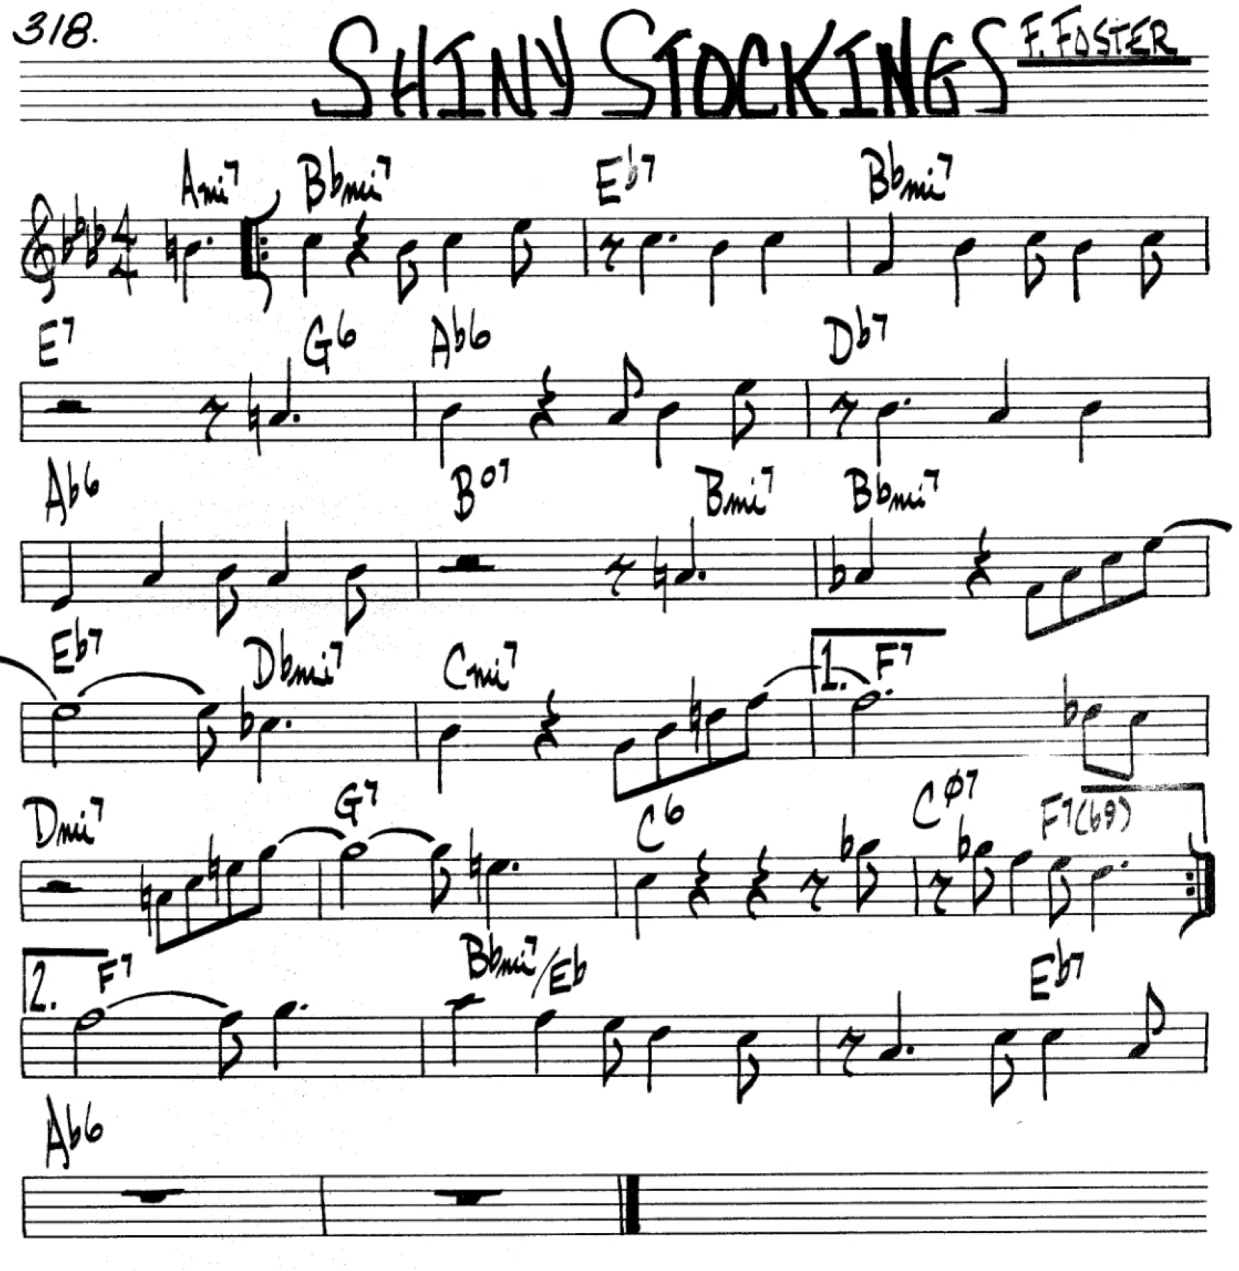 318.
SHINY STOCKINGS F. FOSTER
Ami7 Bbmi7 Eb7 Bbmi7
4
4
E7 G6 Ab6 Db7
Ab6 Bo7 Bmi7 Bbmi7
Eb7 Dbmi7 Cmi7 1. F7
Dmi7 G7 C6 CØ7 F7(b9)
2. F7 Bbmi7/Eb Eb7
Ab6